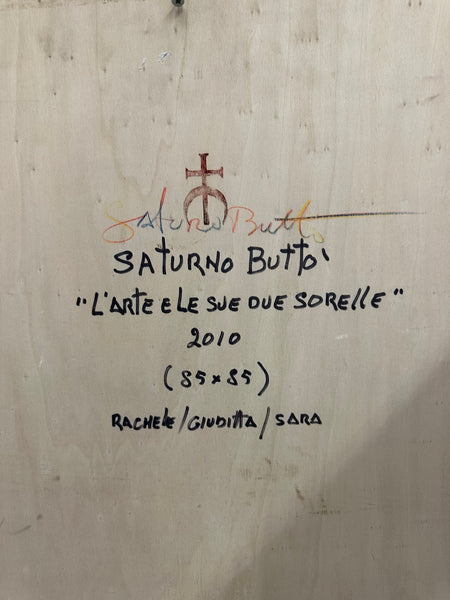 Saturno Buttò
SATURNO BUTTO'
"L'ARTE E LE SUE DUE SORELLE"
2010
(85×85)
RACHELE/GIUDITTA/SARA